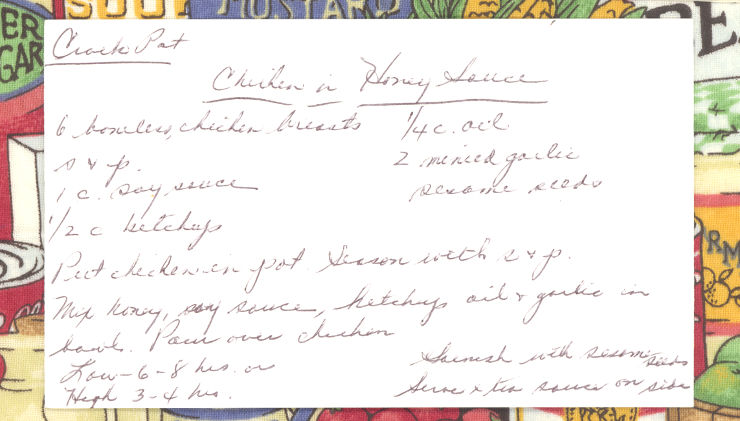 ER
GAR
MUSTARD
Crock Pot
Chicken in Honey Sauce
6 boneless, chicken breasts
1/4 c. oil
s & p.
2 minced garlic
1 c. soy sauce
sesame seeds
1/2 c ketchup
Put chicken in pot. Season with s & p.
Mix honey, soy sauce, ketchup oil & garlic in
bowl. Pour over chicken
Low - 6 - 8 hrs. or
High 3 - 4 hrs.
Garnish with sesame seeds
Serve xtra sauce on side